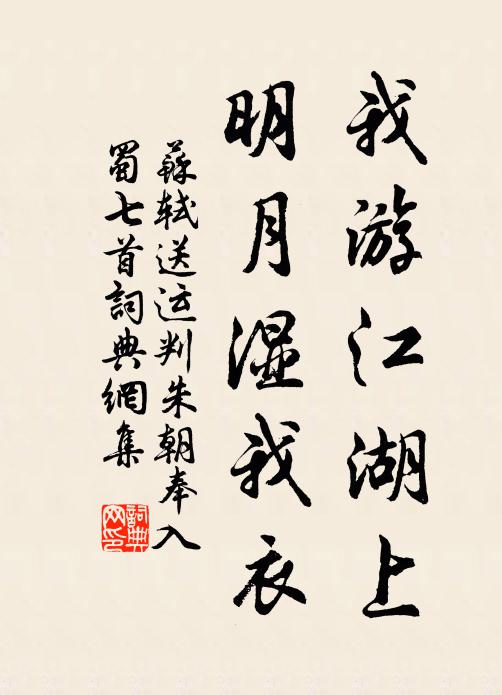 我游江湖上
明月湿我衣
蘇轼送运判朱朝奉入
蜀七首詞典網集
詞典
网印